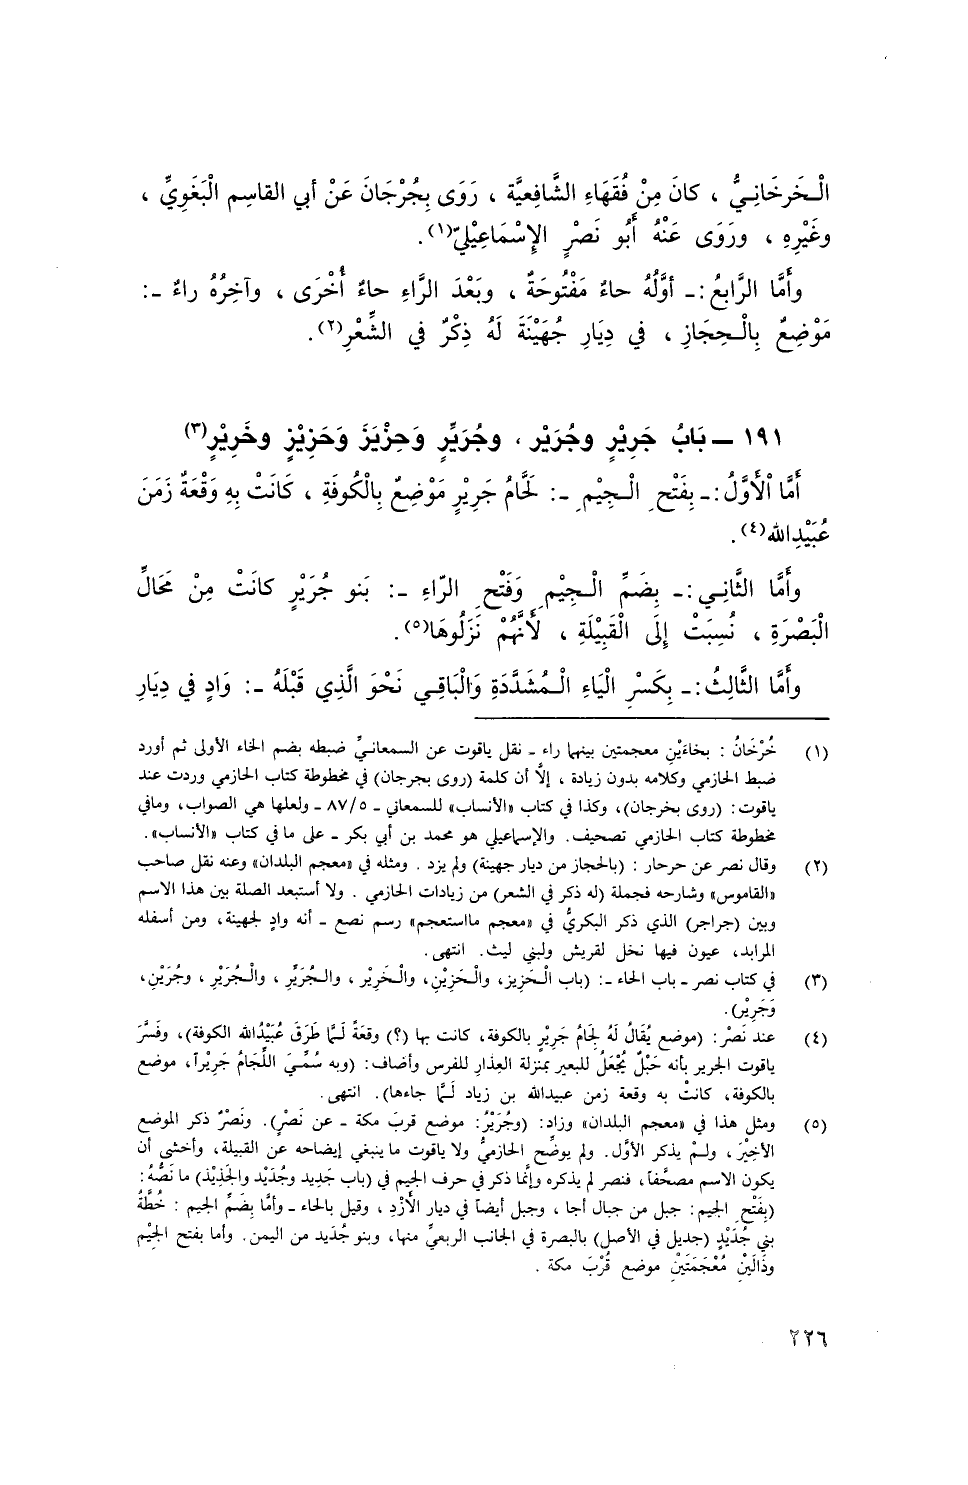 الْـخَرخَانِـيُّ ، كانَ مِنْ فُقَهَاءِ الشَّافِعِيَّة ، رَوَى بِجُرْجَانَ عَنْ أبي القاسِم الْبَغَوِيِّ ،
وغَيْرِهِ ، ورَوَى عَنْهُ أَبُو نَصْرٍ الإسْمَاعِيْلِيّ(١).
وأَمَّا الرَّابعُ :ـ أوَّلُهُ حاءٌ مَفْتُوحَةٌ ، وبَعْدَ الرَّاءِ حاءٌ أُخْرَى ، وآخِرُهُ راءٌ ـ:
مَوْضِعٌ بِالْـحِجَازِ ، في دِيَارِ جُهَيْنَةَ لَهُ ذِكْرٌ في الشِّعْرِ(٢).
١٩١ ــ بَابُ جَرِيْرٍ وجُرَيْر ، وجُرَيِّرٍ وَحِزْيَزَ وَحَزِيْزٍ وخَرِيْرٍ(٣)
أَمَّا الْأَوَّلُ :ـ بِفَتْحِ الْـجِيْمِ ـ: لَحَّامُ جَرِيْرٍ مَوْضِعٌ بِالْكُوفَةِ ، كَانَتْ بِهِ وَقْعَةٌ زَمَنَ
عُبَيْدِالله(٤).
وأَمَّا الثَّانِـي :ـ بِضَمِّ الْـجِيْمِ وَفَتْحِ الرّاءِ ـ: بَنو جُرَيْرٍ كانَتْ مِنْ مَحَالِّ
الْبَصْرَةِ ، نُسِبَتْ إِلَى الْقَبِيْلَةِ ، لأَنَّهُمْ نَزَلُوهَا(٥).
وأَمَّا الثَّالِثُ :ـ بِكَسْرِ الْيَاءِ الْـمُشَدَّدَةِ وَالْبَاقِـي نَحْوَ الَّذِي قَبْلَهُ ـ: وَادٍ في دِيَارِ
(١) خُرْخَانُ : بخاءَيْنِ معجمتين بينهما راء ـ نقل ياقوت عن السمعانـيِّ ضبطه بضم الخاء الأولى ثم أورد
ضبط الحازمي وكلامه بدون زيادة ، إلَّا أن كلمة (روى بجرجان) في مخطوطة كتاب الحازمي وردت عند
ياقوت : (روى بخرجان)، وكذا في كتاب «الأنساب» للسمعاني ـ ٨٧/٥ ـ ولعلها هي الصواب، ومافي
مخطوطة كتاب الحازمي تصحيف. والإسماعيلي هو محمد بن أبي بكر ـ على ما في كتاب «الأنساب».
(٢) وقال نصر عن حرحار : (بالحجاز من ديار جهينة) ولم يزد . ومثله في «معجم البلدان» وعنه نقل صاحب
«القاموس» وشارحه فجملة (له ذكر في الشعر) من زيادات الحازمي . ولا أستبعد الصلة بين هذا الاسم
وبين (جراجر) الذي ذكر البكريُّ في «معجم مااستعجم» رسم نصع ـ أنه وادٍ لجهينة، ومن أسفله
المرابد، عيون فيها نخل لقريش ولبني ليث. انتهى.
(٣) في كتاب نصر ـ باب الحاء ـ: (باب الْـحَزِيز، والْـحَزِيْن، والْـخَرِيْر ، والـجُرَيِّر ، والْـجُرَيْر ، وجُرَيْن،
وَجَرِيْر).
(٤) عند نَصْر : (موضع يُقَالُ لَهُ لِجَامُ جَرِيْرٍ بالكوفة، كانت بها (؟) وقعَةٌ لَـمَّا طَرَقَ عُبَيْدُالله الكوفة)، وفَسَّرَ
ياقوت الجرير بأنه حَبْلٌ يُجْعَلُ للبعير بمنزلة العِذار للفرس وأضاف: (وبه سُمِّـيَ اللَّجَامُ جَرِيْراً، موضع
بالكوفة، كانتْ به وقعة زمن عبيدالله بن زياد لَـمَّا جاءها). انتهى.
(٥) ومثل هذا في «معجم البلدان» وزاد: (وجُرَيْرُ: موضع قربَ مكة ـ عن نَصْرٍ). ونَصْرٌ ذكر الموضع
الأخِيْرَ ، ولـمْ يذكر الأوَّل. ولم يوضِّح الحازميُّ ولا ياقوت ما ينبغي إيضاحه عن القبيلة، وأخشى أن
يكون الاسم مصحَّفاً، فنصر لم يذكره وإنَّما ذكر في حرف الجيم في (باب جَدِيد وجُدَيْد والجَذِيْذ) ما نَصُّهُ:
(بِفَتْحِ الجيم: جبل من جبال أجا ، وجبل أيضاً في ديار الأَزْدِ ، وقيل بالحاء ـ وأمَّا بِضَمِّ الجيم : خُطَّةُ
بني جُدَيْدٍ (جديل في الأصل) بالبصرة في الجانب الربعيِّ منها، وبنو جُدَيد من اليمن. وأما بفتح الجيْم
وذَالَيْنِ مُعْجَمَتَيْنِ موضع قُرْبَ مكة .
٢٢٦